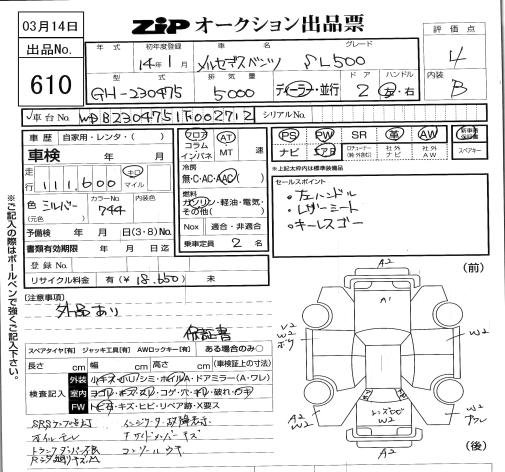 03月14日
ZiP オークション出品票
評価点
4
出品No.
610
年式 初年度登録 車名 グレード
14年1月 メルセデスベンツ SL500
型式 排気量 ドア ハンドル
GH-230475 5000 ディーラー・並行 2 左・右
内装
B
車台No. WDB2304751F002712 シリアルNo.
車歴 自家用・レンタ・( )
車検 年 月
走行 111,600 キロ マイル
色 シルバー (元色) カラーNo. 744 内装色
予備検 年 月 日(3・8)
書類有効期限 年 月 日迄
登録No.
リサイクル料金 有(¥18,650) 無
フロア コラム インパネ AT MT 速
冷房
無・C・AC・AAC( )
燃料
ガソリン・軽油・電気・その他( )
Nox 適合・非適合
乗車定員 2 名
PS PW SR 革 AW 新車時保証書
ナビ エアB 社外ナビ 社外AW スペアキー
※上記太枠内は標準装備品
セールスポイント
・左ハンドル
・レザーシート
・キーレスゴー
※ご記入の際はボールペンで強くご記入下さい。
[注意事項]
外品あり
保証書
スペアタイヤ[有] ジャッキ工具[有] AWロックキー[有] ある場合のみ○
長さ cm 幅 cm 高さ cm (車検証上の寸法)
検査記入
外装 小キズ・小凹/シミ・ホイルA・ドアミラー(A・ワレ)
室内 ヨゴレ・キズ・スレ・コゲ・穴・キレ・破れ・ウキ
FW トビ石・キズ・ヒビ・リペア跡・X要ス
オイルモレ
コンソールウキ
(前)
A2
A1
W2
W2
ボウ
W2
W2
W2
A2
(後)